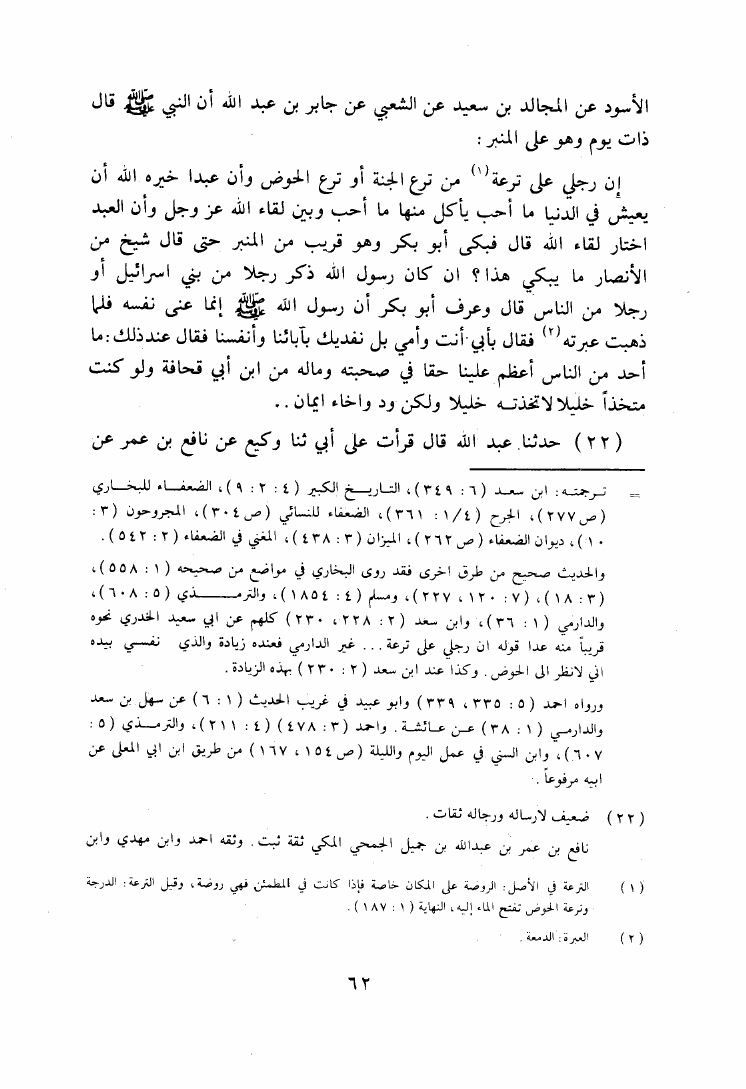 الأسود عن المجالد بن سعيد عن الشعبي عن جابر بن عبد الله أن النبي ﷺ قال
ذات يوم وهو على المنبر :
إن رجلي على ترعة(١) من ترع الجنة أو ترع الحوض وأن عبدا خيره الله أن
يعيش في الدنيا ما أحب يأكل منها ما أحب وبين لقاء الله عز وجل وأن العبد
اختار لقاء الله قال فبكى أبو بكر وهو قريب من المنبر حتى قال شيخ من
الأنصار ما يبكي هذا؟ ان كان رسول الله ذكر رجلا من بني اسرائيل أو
رجلا من الناس قال وعرف أبو بكر أن رسول الله ﷺ إنما عنى نفسه فلما
ذهبت عبرته(٢) فقال بأبي أنت وأمي بل نفديك بآبائنا وأنفسنا فقال عند ذلك : ما
أحد من الناس أعظم علينا حقا في صحبته وماله من ابن أبي قحافة ولو كنت
متخذاً خليلا لاتخذته خليلا ولكن ود واخاء ايمان . .
(٢٢) حدثنا عبد الله قال قرأت على أبي ثنا وكيع عن نافع بن عمر عن
= ترجمته : ابن سعد (٦ : ٣٤٩)، التاريخ الكبير (٤ : ٢ : ٩)، الضعفاء للبخاري
(ص ٢٧٧)، الجرح (١/٤ : ٣٦١)، الضعفاء للنسائي (ص ٣٠٤)، المجروحون (٣ :
١٠)، ديوان الضعفاء (ص ٢٦٢)، الميزان (٣ : ٤٣٨)، المغني في الضعفاء (٢ : ٥٤٢) .
والحديث صحيح من طرق اخرى فقد روى البخاري في مواضع من صحيحه (١ : ٥٥٨)،
(٣ : ١٨)، (٧ : ١٢٠، ٢٢٧)، ومسلم (٤ : ١٨٥٤)، والترمذي (٥ : ٦٠٨)،
والدارمي (١ : ٣٦)، وابن سعد (٢ : ٢٢٨، ٢٣٠) كلهم عن ابي سعيد الخدري نحوه
قريباً منه عدا قوله ان رجلي على ترعة ... غير الدارمي فعنده زيادة والذي نفسي بيده
اني لانظر الى الحوض . وكذا عند ابن سعد (٢ : ٢٣٠) بهذه الزيادة .
ورواه احمد (٥ : ٣٣٥، ٣٣٩) وابو عبيد في غريب الحديث (١ : ٦) عن سهل بن سعد
والدارمي (١ : ٣٨) عن عائشة . واحمد (٣ : ٤٧٨) (٤ : ٢١١)، والترمذي (٥ :
٦٠٧)، وابن السني في عمل اليوم والليلة (ص ١٥٤، ١٦٧) من طريق ابن ابي المعلى عن
ابيه مرفوعاً .
(٢٢) ضعيف لارساله ورجاله ثقات .
نافع بن عمر بن عبدالله بن جميل الجمحي المكي ثقة ثبت . وثقه احمد وابن مهدي وابن
(١) الترعة في الأصل : الروضة على المكان خاصة فإذا كانت في المطمئن فهي روضة، وقيل الترعة : الدرجة
وترعة الحوض تفتح الماء إليه، النهاية (١ : ١٨٧) .
(٢) العبرة : الدمعة .
٦٢